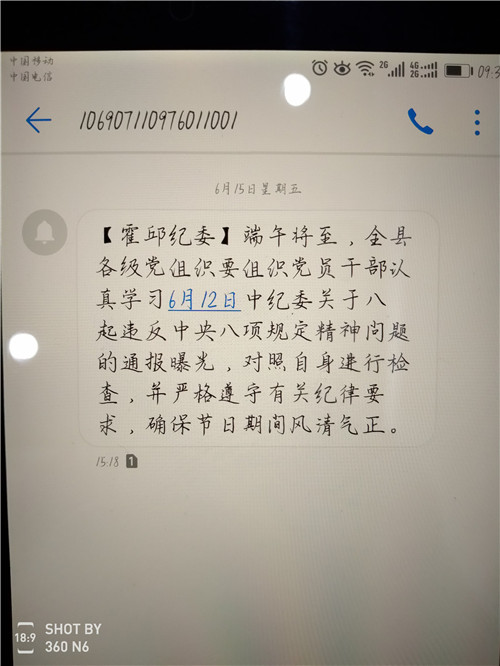 中国移动
中国电信
2G 4G 2G 09:3
106907110976011001
6月15日星期五
【霍邱纪委】端午将至，全县
各级党组织要组织党员干部认
真学习6月12日中纪委关于八
起违反中央八项规定精神问题
的通报曝光，对照自身进行检
查，并严格遵守有关纪律要
求，确保节日期间风清气正。
15:18 1
18:9 SHOT BY
360 N6